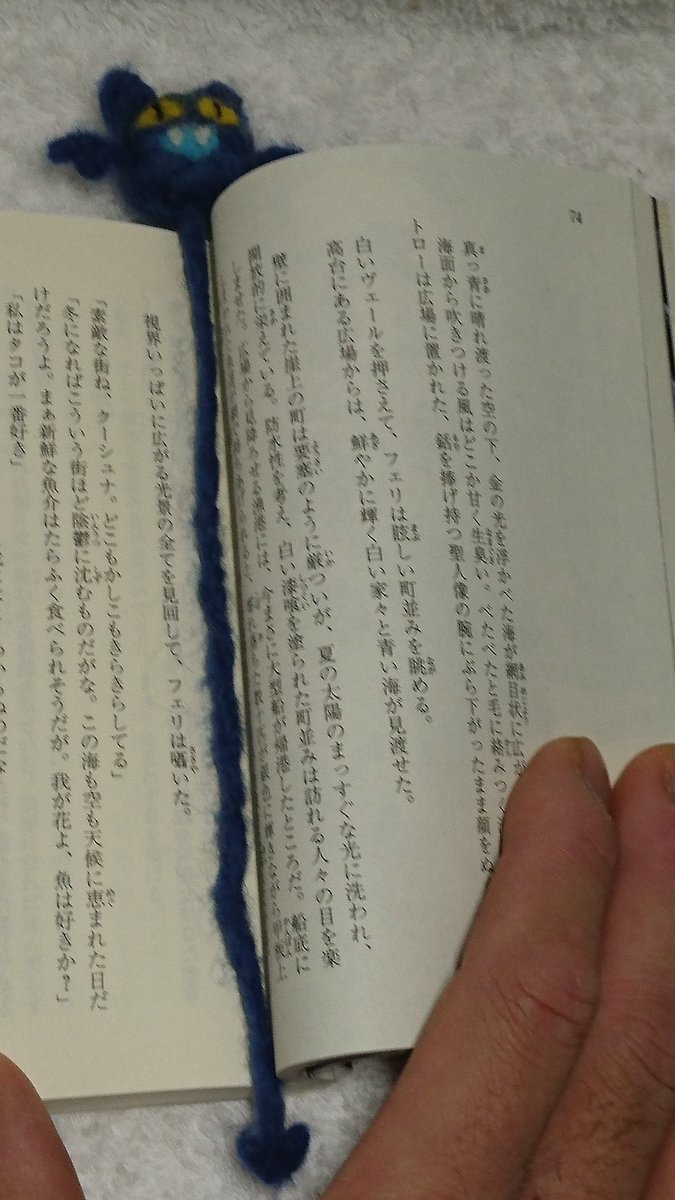 74
真っ青に晴れ渡った空の下、金の光を浮かべた海が網目状に広が
海面から吹きつける風はどこか甘く生臭い。べたべたと毛に絡みつく
トローは広場に置かれた、銛を捧げ持つ聖人像の腕にぶら下がったまま顔をぬ
白いヴェールを押さえて、フェリは眩しい町並みを眺める。
高台にある広場からは、鮮やかに輝く白い家々と青い海が見渡せた。
壁に囲まれた崖上の町は要塞のように厳ついが、夏の太陽のまっすぐな光に洗われ、
開放的に栄えている。防水性を考え、白い漆喰を塗られた町並みは訪れる人々の目を楽
しませた。広場から見降ろせる港湾には、今まさに大型船が帰港したところだ。船底に
視界いっぱいに広がる光景の全てを見回して、フェリは囁いた。
「素敵な街ね、クーシュナ。どこもかしこもきらきらしてる」
「冬になればこういう街ほど陰鬱に沈むものだがな。この海も空も天候に恵まれた日だ
けだろうよ。まぁ新鮮な魚介はたらふく食べられそうだが。我が花よ、魚は好きか?」
「私はタコが一番好き」